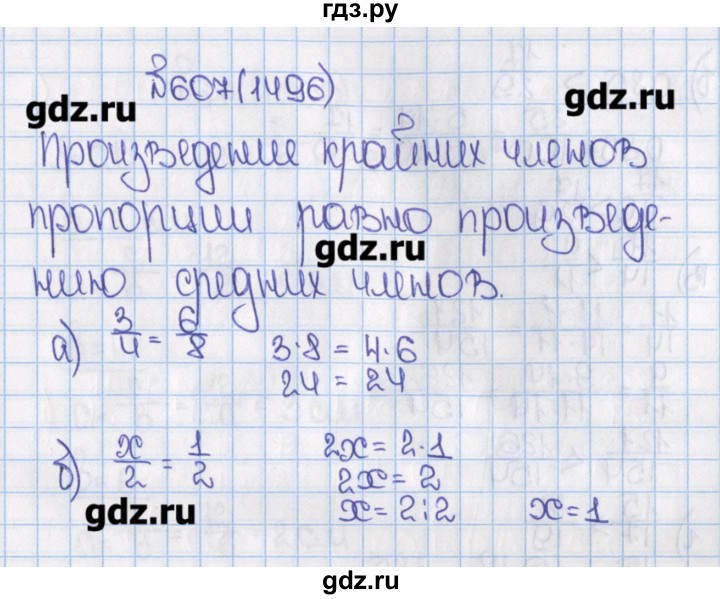 гдз.ру
№607(1496)
gdz.ru
gdz.ru
Произведение крайних членов
пропорции равно произведе-
gdz.ru
нию средних членов.
а) 3/4 = 6/8 3·8 = 4·6
24 = 24
б) x/2 = 1/2 2x = 2·1
2x = 2
gdz.ru
x = 2:2 x = 1
gdz.ru